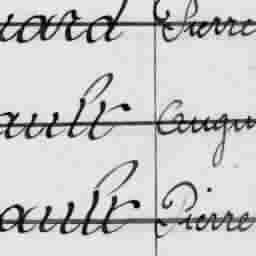 uard Pierre
ault Augu
ault Pierre